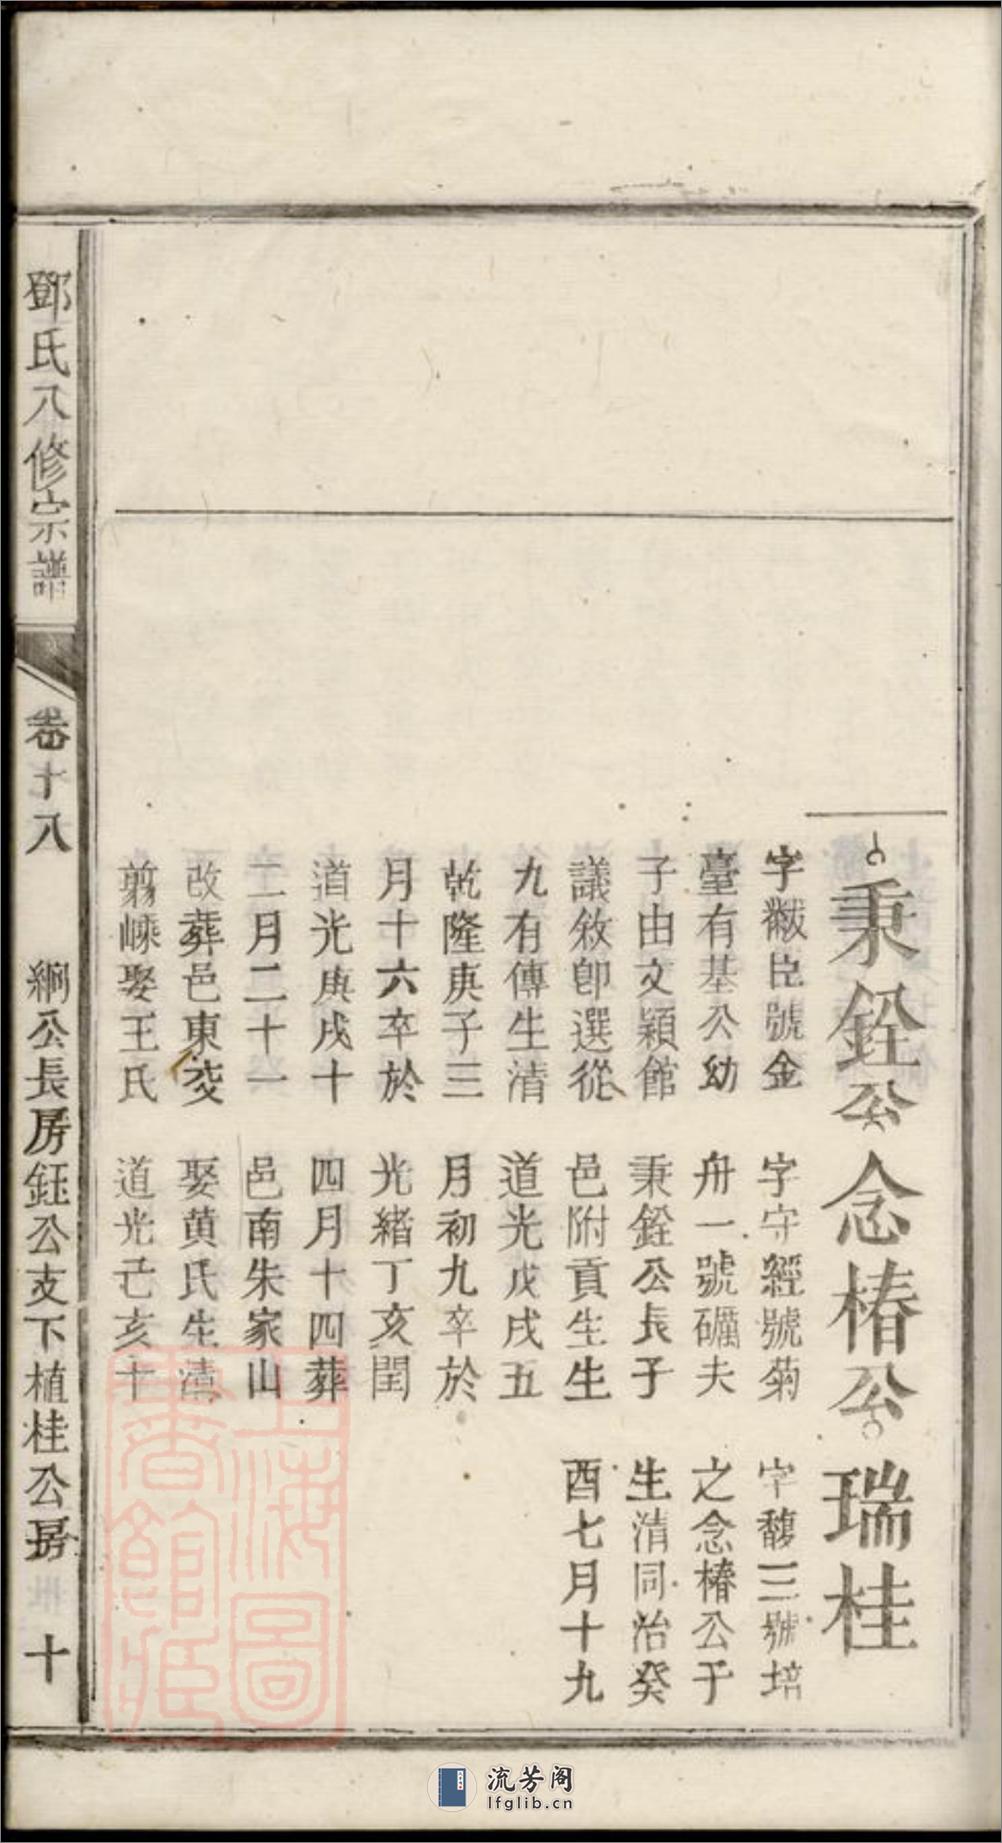 秉銓公 念椿公 瑞桂
字黻臣號金
臺有基公幼
子由文穎館
議敘卽選從
九有傳生清
乾隆庚子三
月十六卒於
道光庚戌十
二月二十一
改葬邑東茭
蒭嵊娶王氏
字守經號菊
舟一號礪夫
秉銓公長子
邑附貢生生
道光戊戌五
月初九卒於
光緒丁亥閏
四月十四葬
邑南朱家山
娶黄氏生清
道光己亥十
字馥三號培
之念椿公子
生清同治癸
酉七月十九
鄧氏八修宗譜
卷十八
綱公長房鈺公支下植桂公房
十
上海圖書館藏
流芳阁
lfglib.cn